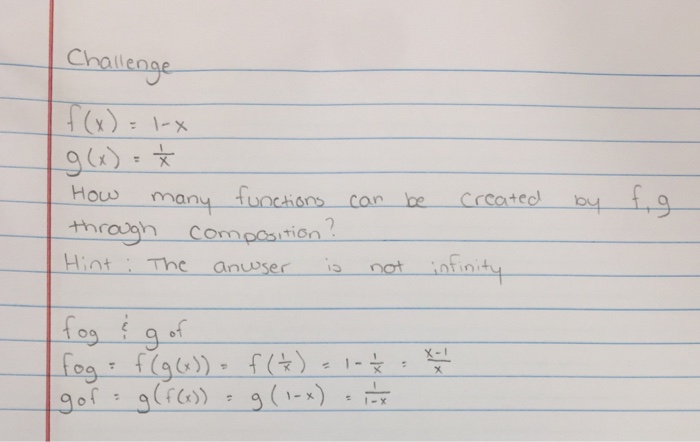 Challenge
f(x) = 1-x
g(x) = 1/x
How many functions can be created by f, g
through composition?
Hint: The anwser is not infinity
fog & gof
fog = f(g(x)) = f(1/x) = 1 - 1/x = x-1/x
gof = g(f(x)) = g(1-x) = 1/1-x